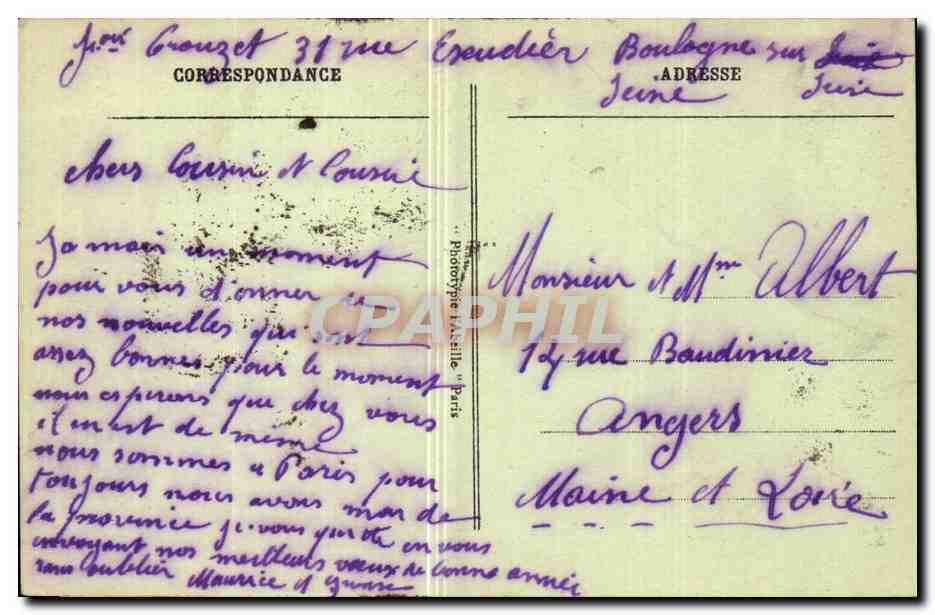 Crouzet 31 rue Escudièr Boulogne sur
Seine
CORRESPONDANCE
ADRESSE
chers Cousin et Cousine
Ja mais un moment
pour vous d'onner
nos nouvelles qui sont
assez bonnes pour le moment
nous esperons que chez vous
il en est de meme
nous sommes a Paris pour
toujours nous avons mar de
la province je vous quitte en vous
envoyant nos meilleurs vœux de bonne année
sans oublier Maurice et
"Phototypie l'Abeille" Paris
Monsieur et Mme Albert
14 rue Baudinier
Angers
Maine et Loire
CPAPHIL